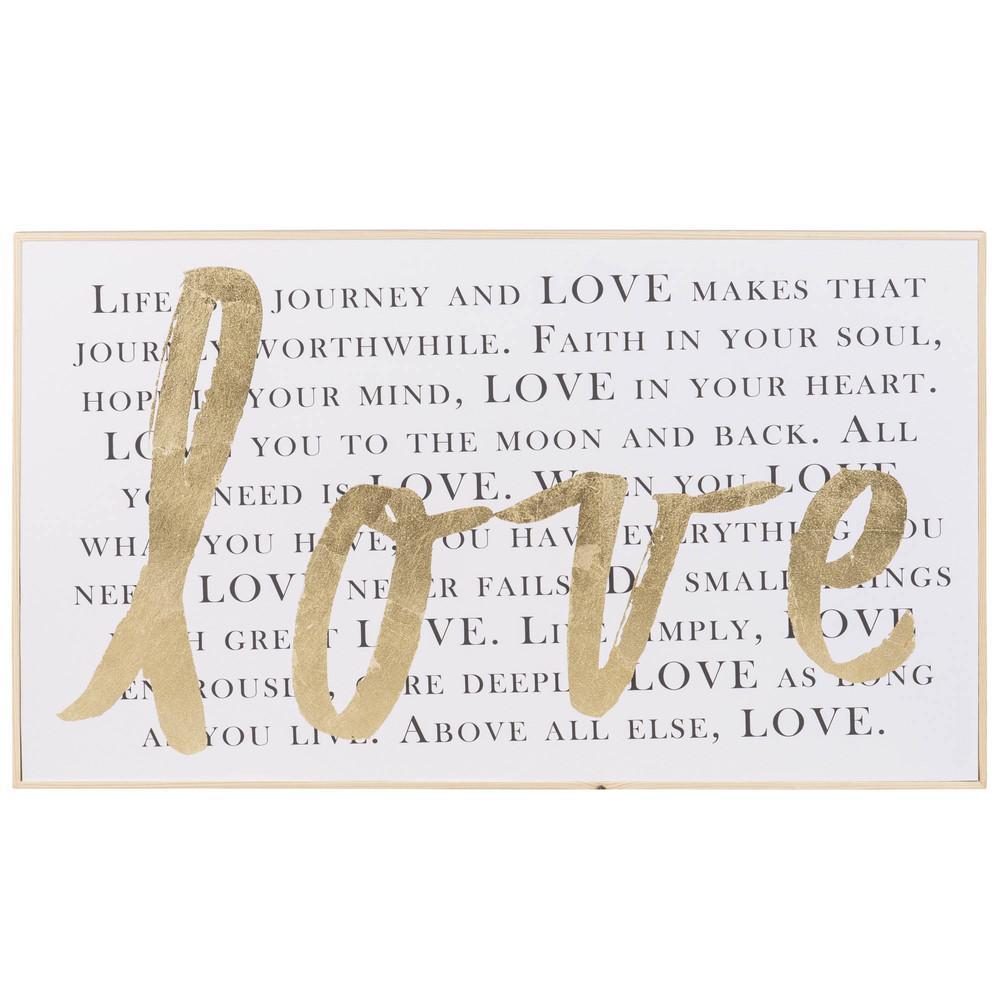 Life is a journey and LOVE makes that
journey worthwhile. Faith in your soul,
hope in your mind, LOVE in your heart.
LOVE you to the moon and back. All
you need is LOVE. When you LOVE
what you have, you have everything you
need. LOVE never fails. Do small things
with great LOVE. Live simply, LOVE
generously, care deeply. LOVE as long
as you live. Above all else, LOVE.
love